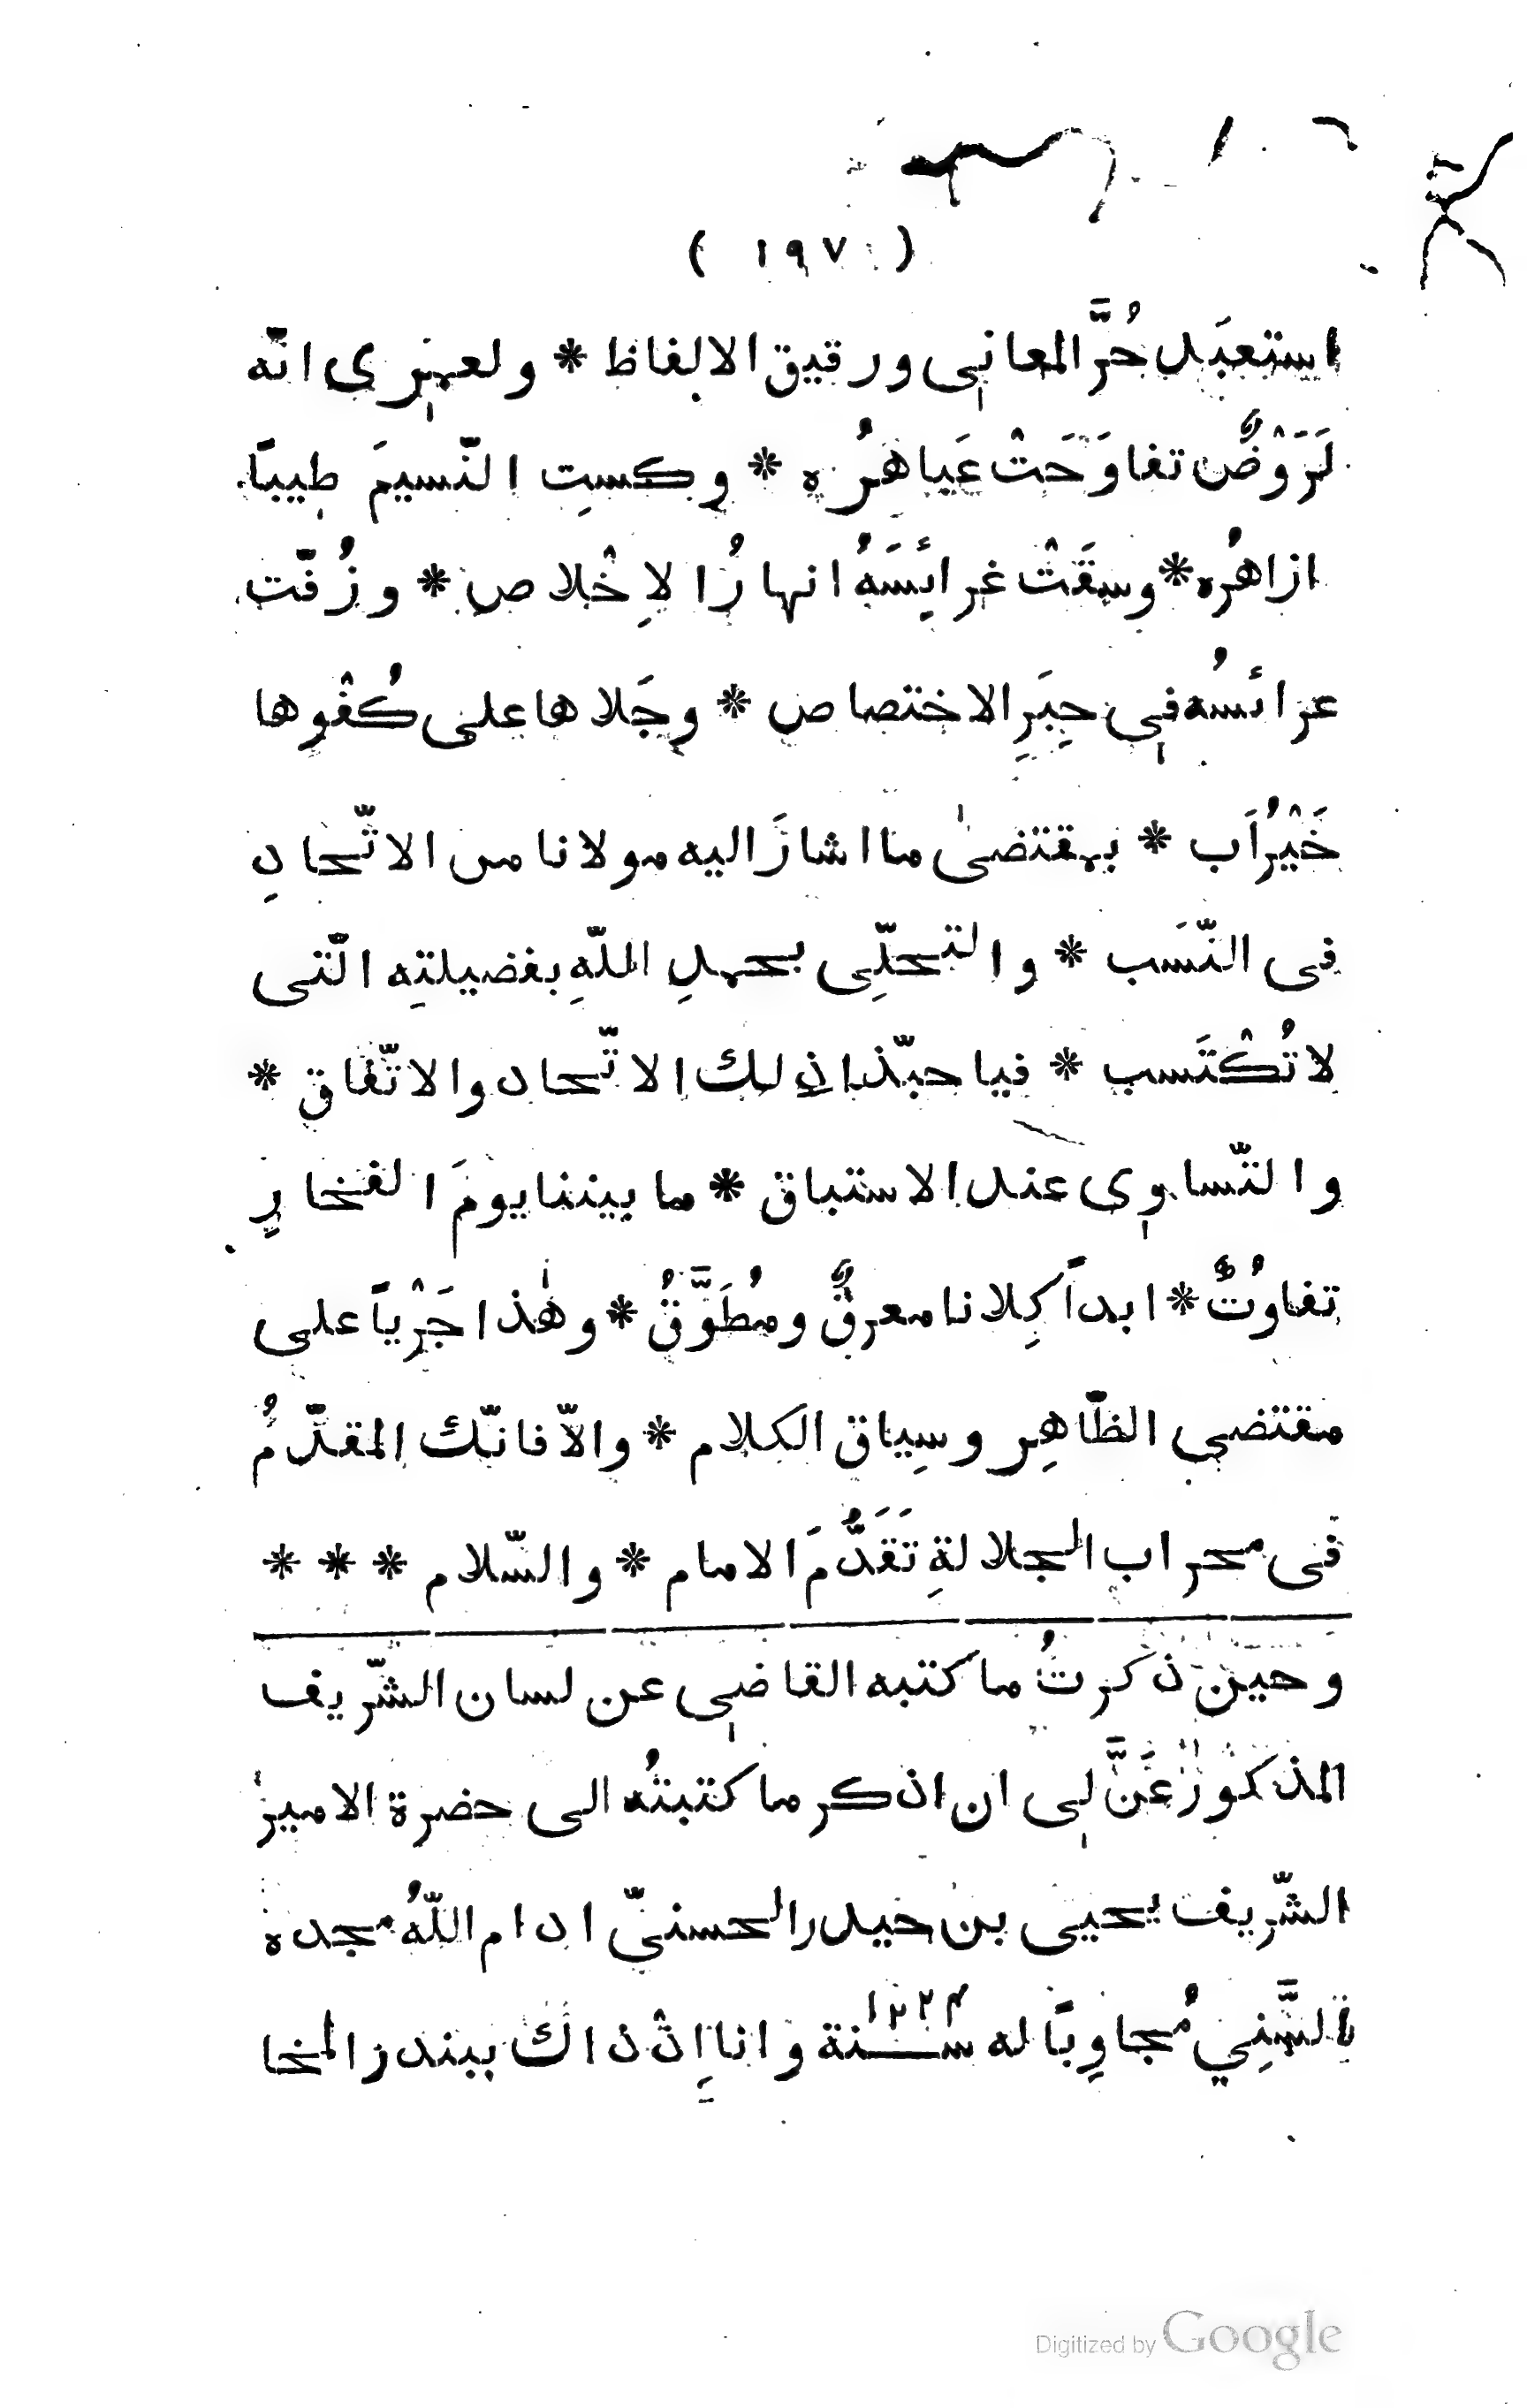 ( ١٩٧ )
استعبَد حُرَّ المعاني ورقيق الالفاظ * ولعمري انّه
لَرَوْضٌ تفاوَحَتْ عَباهرُه * وكستِ النّسيمَ طيباً
ازاهرُه * وسقَتْ غرائِسَهُ انهارُ الاِخْلاص * وزُفّت
عرائسُه في حِبَرِ الاختصاص * وجَلاها على كُفْوها
خَيْرُ اَب * بمقتضىٰ ما اشارَ اليه مولانا من الاتّحادِ
في النّسَب * والتحلّي بحمدِ اللّهِ بفضيلتِه الّتي
لا تُكْتَسب * فيا حبّذا ذلك الاتّحاد والاتّفاق *
والتّساوي عند الاستباق * ما بيننا يومَ الفخارِ
تفاوُتٌ * ابداً كِلانا معرقٌ ومُطَوَّقُ * وهٰذا جَرْياً على
مقتضى الظّاهِر وسِياق الكلام * والاّ فانّك المقدّمُ
في محراب الجلالةِ تَقَدُّمَ الامام * والسّلام * * *
وحين ذكرتُ ما كتبه القاضي عن لسان الشّريف
المذكور عَنَّ لي ان اذكر ما كتبتُه الى حضرة الامير
الشّريف يحيى بن حيدر الحسنيّ ادام اللّهُ مجده
بالسَّنِي مُجاوِباً له سنة ١٢٢٤ وانا اِذْ ذاك ببندر المخا
Digitized by Google